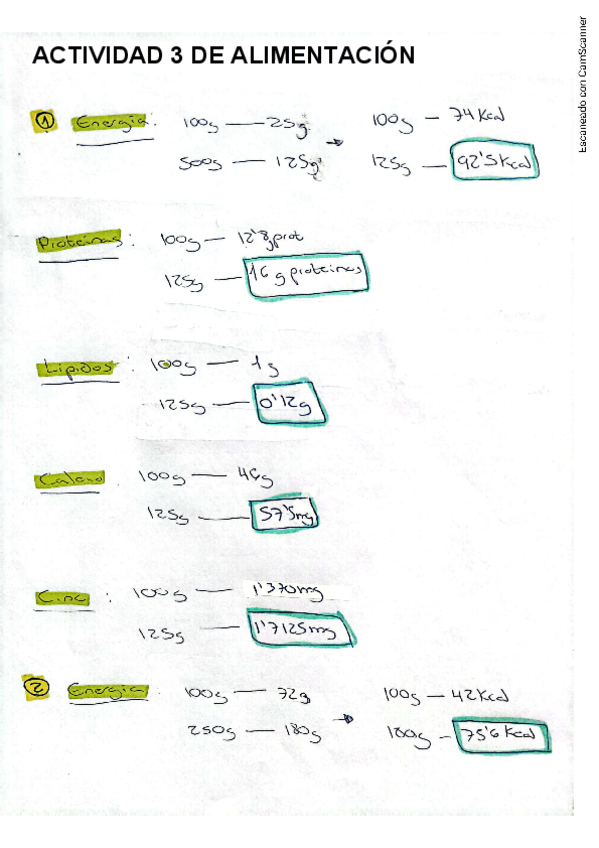 ACTIVIDAD 3 DE ALIMENTACIÓN
① Energía: 100g — 25g → 100g — 74 Kcal
500g — 125g 125g — 92'5 Kcal
Proteínas: 100g — 12'8g prot
125g — 16 g proteínas
Lípidos: 100g — 1g
125g — 0'12g
Calcio 100g — 46g
125g — 57'5mg
Cinc: 100g — 1'370mg
125g — 1'7125mg
② Energía: 100g — 72g → 100g — 42 Kcal
250g — 180g 180g — 75'6 Kcal
Escaneado con CamScanner